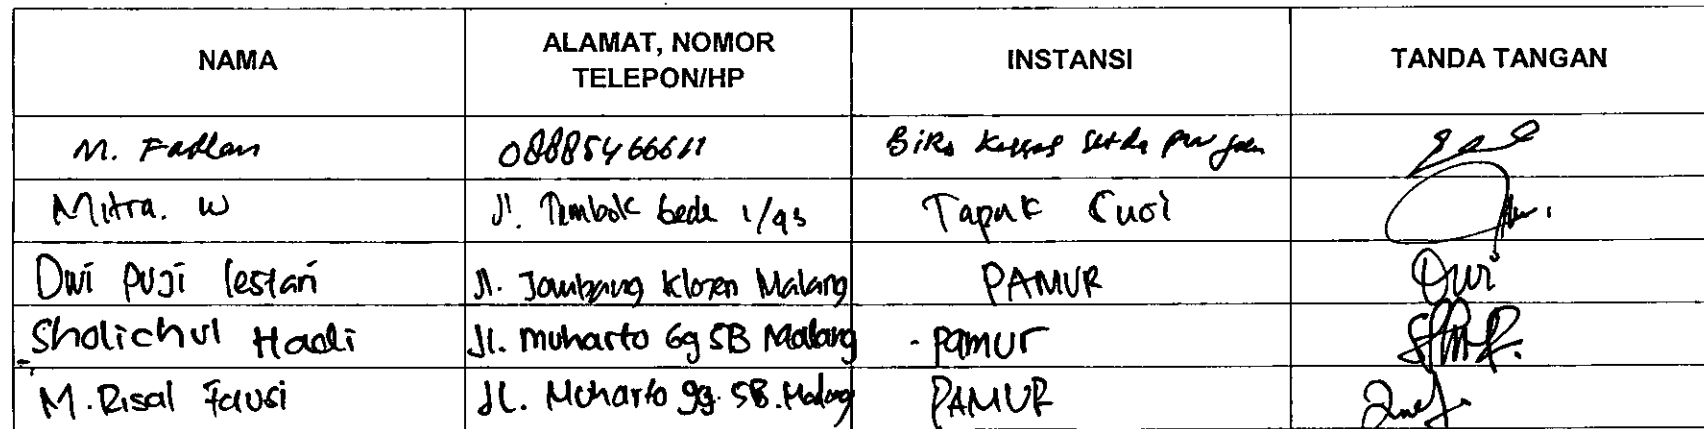 NAMA
ALAMAT, NOMOR
TELEPON/HP
INSTANSI
TANDA TANGAN
M. Fadlan
08885466611
Biro
Mitra. W
Jl. Tembok Gede 1/93
Tapak Suci
Dwi Puji lestari
Jl. Jombang Klojen Malang
PAMUR
Dwi
Sholichul Hadi
Jl. muharto Gg 5B Malang
- pamur
M. Risal Fausi
JL. Muharto gg. 5B. Malang
PAMUR